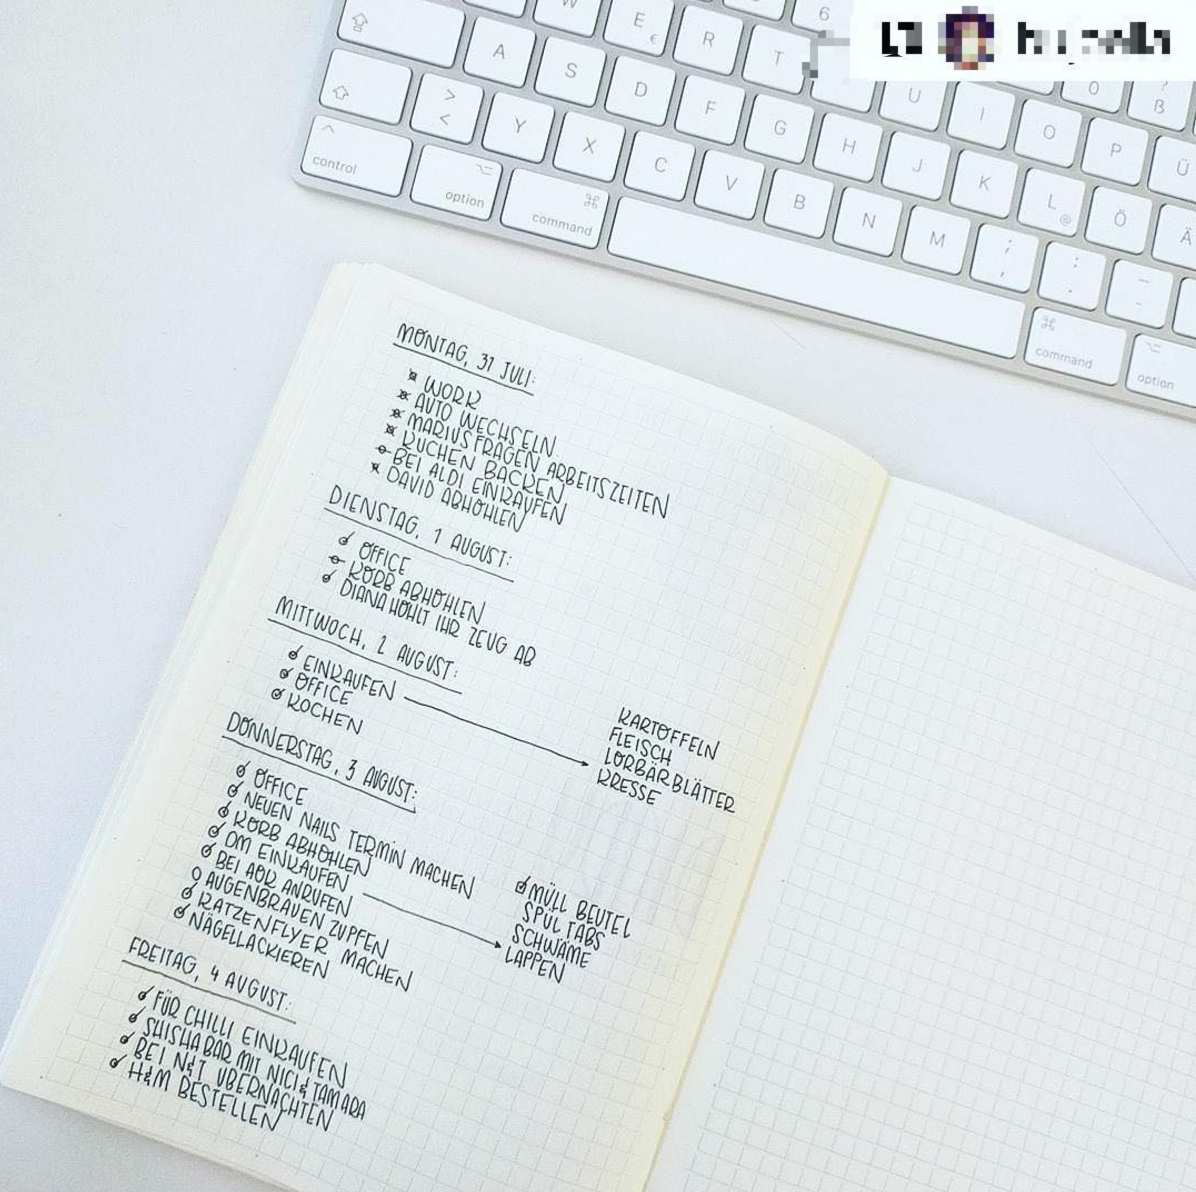 6
W
E
€
R
T
A
S
D
F
G
H
J
K
L
@
Ö
Ä
U
I
O
P
Ü
0
?
ß
>
<
Y
X
C
V
B
N
M
;
,
:
.
control
option
command
command
option
MONTAG, 31 JULI:
WORK
AUTO WECHSELN
MARIUS FRAGEN ARBEITSZEITEN
KUCHEN BACKEN
BEI ALDI EINKAUFEN
DAVID ABHOHLEN
DIENSTAG, 1 AUGUST:
OFFICE
KORB ABHOHLEN
DIANA HOHLT IHR ZEUG AB
MITTWOCH, 2 AUGUST:
EINKAUFEN
OFFICE
KOCHEN
KARTOFFELN
FLEISCH
LORBÄRBLÄTTER
KRESSE
DONNERSTAG, 3 AUGUST:
OFFICE
NEUEN NAILS TERMIN MACHEN
KORB ABHOHLEN
DM EINKAUFEN
BEI AOK ANRUFEN
AUGENBRAUEN ZUPFEN
KATZENFLYER MACHEN
NÄGELLACKIEREN
MÜLL BEUTEL
SPÜL TABS
SCHWÄME
LAPPEN
FREITAG, 4 AUGUST:
FÜR CHILLI EINKAUFEN
SHISHABAR MIT NICI & TAMARA
BEI N&T ÜBERNACHTEN
H&M BESTELLEN